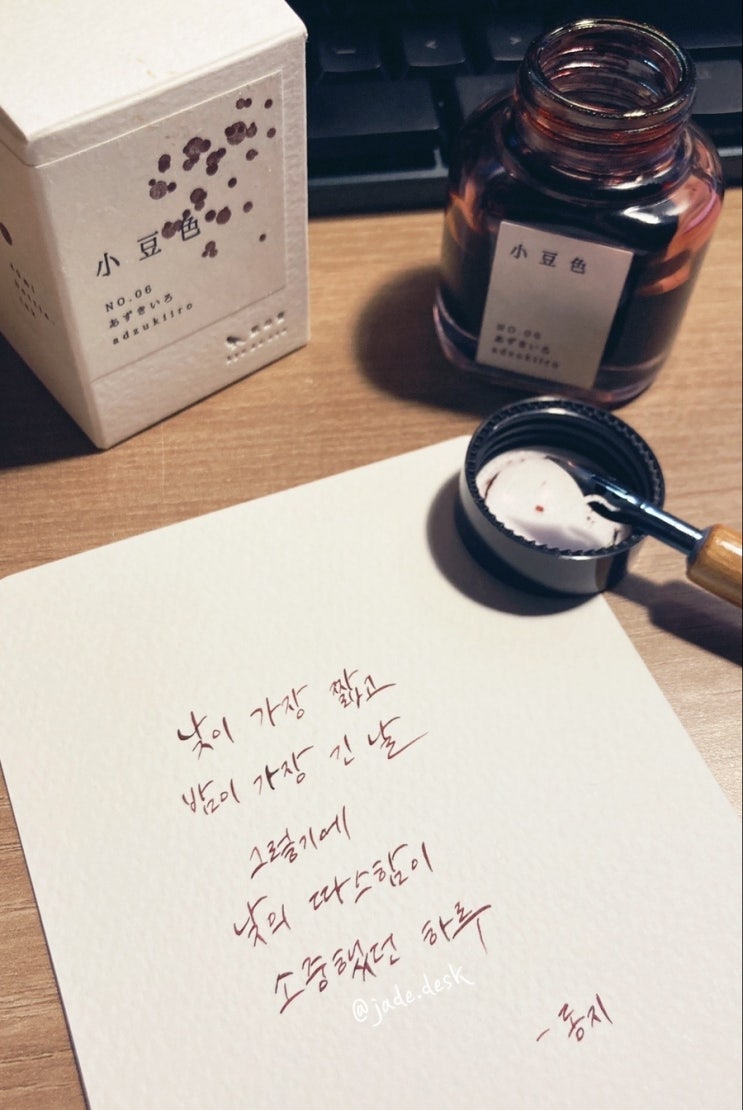 小豆色
NO.06
あずきいろ
adzukiiro
小豆色
NO.06
あずきいろ
adzukiiro
낮이 가장 짧고
밤이 가장 긴 날
그렇기에
낮의 따스함이
소중했던 하루
@jade.desk
- 동지